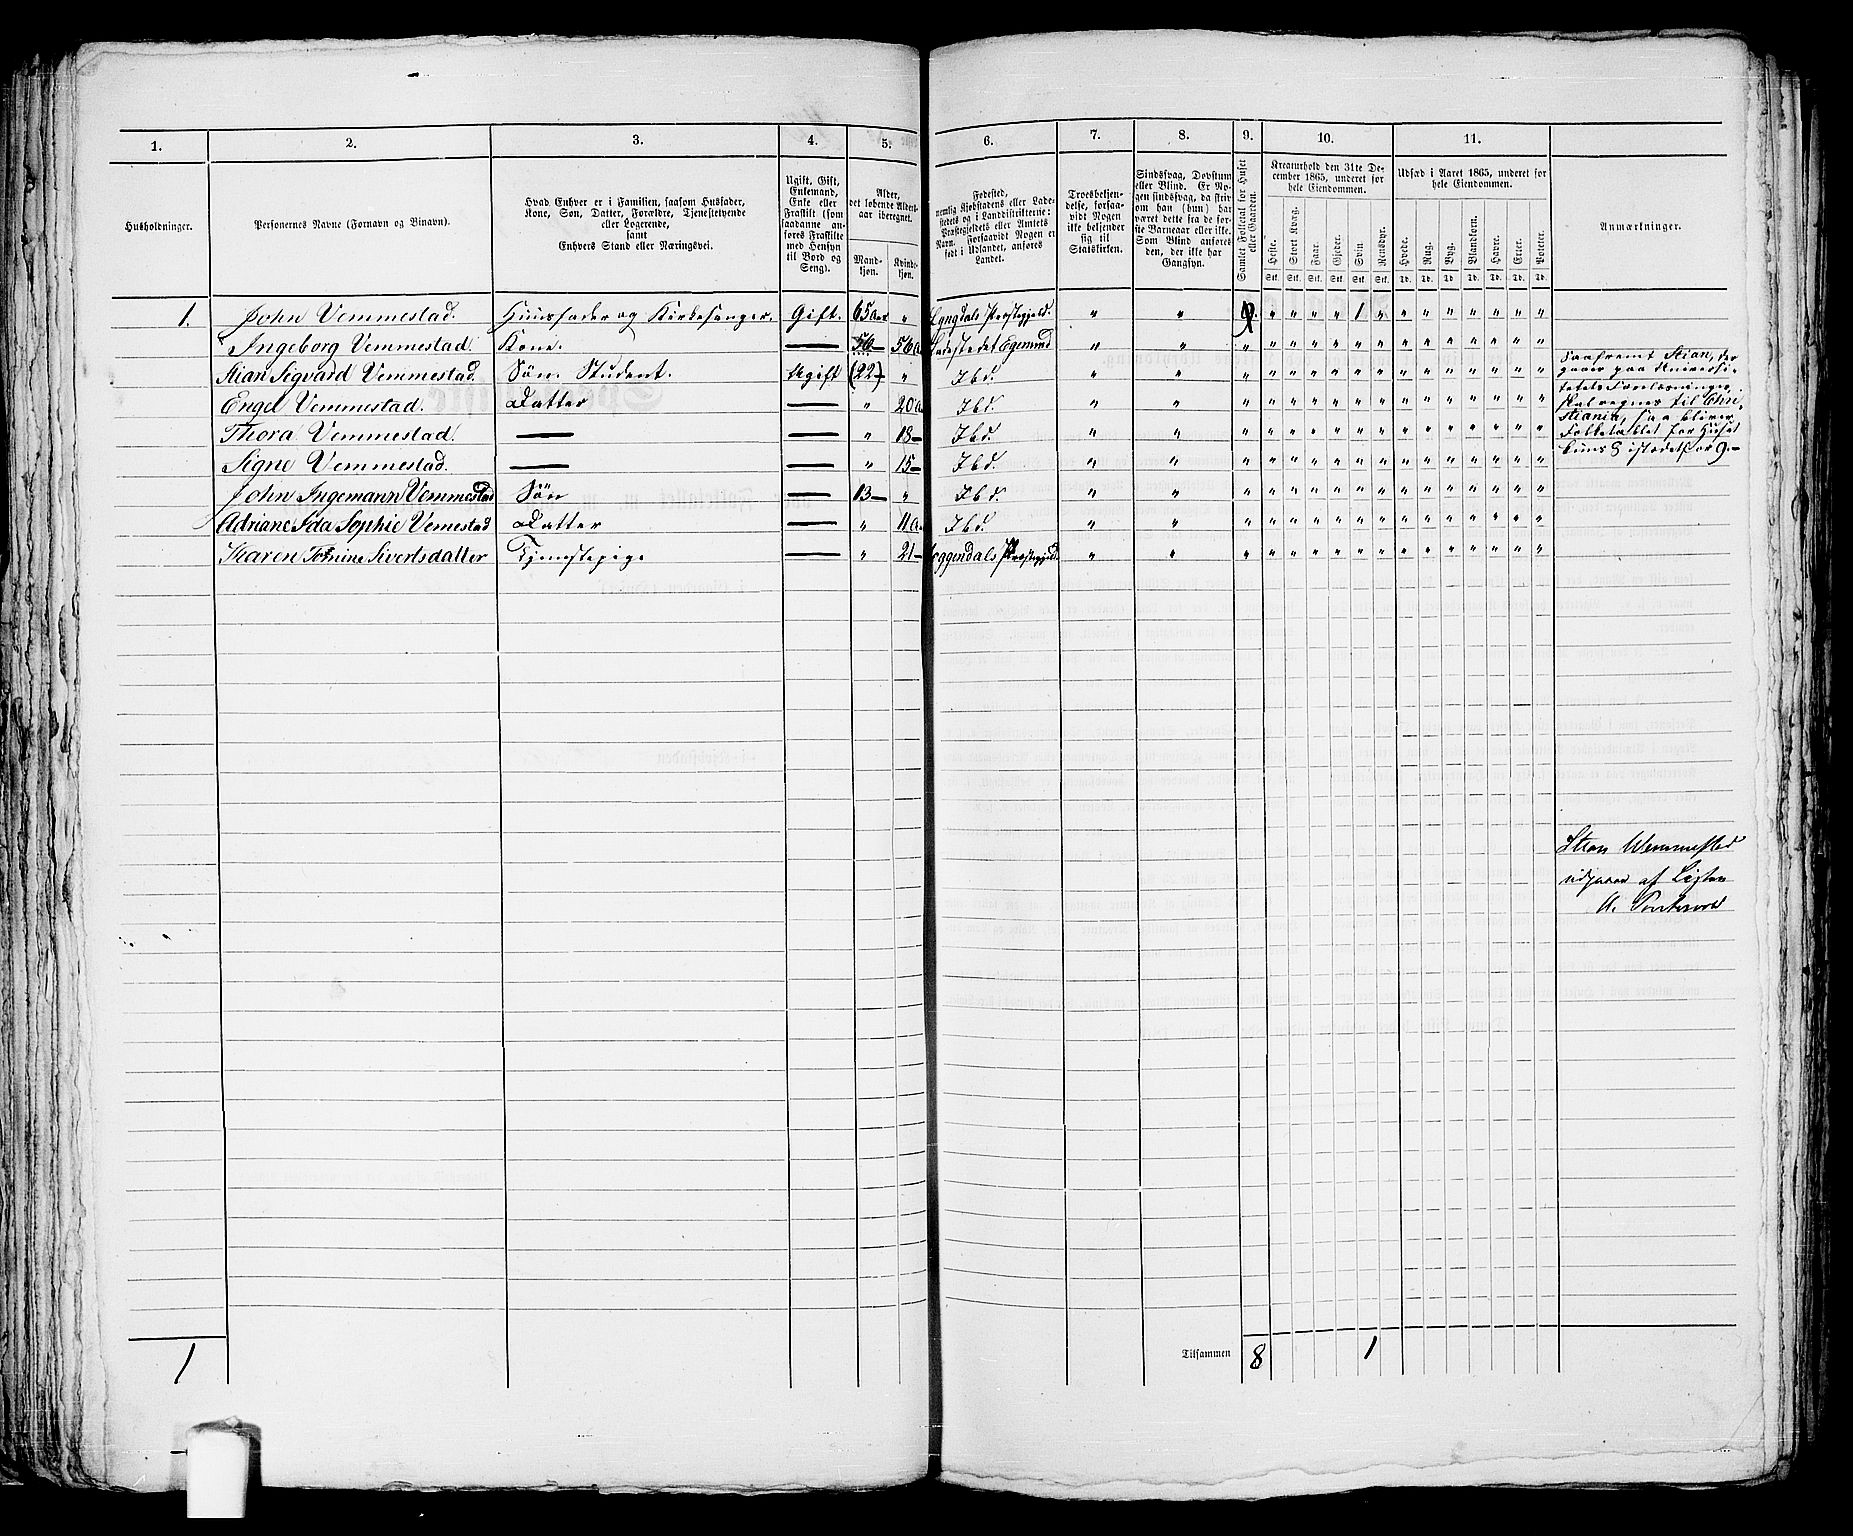 1. 2. 3. 4. 5. 6. 7. 8. 9. 10. 11.
Husholdninger.
Personernes Navne (Fornavn og Binavn).
Hvad Enhver er i Familien, saasom Husfader,
Kone, Søn, Datter, Forældre, Tjenestetyende
eller Logerende,
samt
Enhvers Stand eller Næringsvei.
Ugift, Gift,
Enkemand,
Enke eller
Fraskilt (som
saadanne an-
føres Fraskilte
med Hensyn
til Bord og
Seng).
Alder,
det løbende Alders-
aar iberegnet.
Mand-
kjøn.
Kvinde-
kjøn.
Fødested,
nemlig Kjøbstadens eller Lade-
stedets og i Landdistrikterne:
Præstegjeldets eller Amtets
Navn. Forsaavidt Nogen er
født i Udlandet, anføres
Landet.
Troesbekjen-
delse, forsaa-
vidt Nogen
ikke bekjender
sig til
Statskirken.
Sindssvag, Døvstum
eller Blind. Er No-
gen sindssvag, da skriv
om han (hun) har
været dette fra de før-
ste Barneaar eller ikke.
Som Blind anføres
den, der ikke har
Gangsyn.
Samlet Folketal for Huset
eller Gaarden.
Kreaturhold den 31te De-
cember 1865, underet for
hele Eiendommen.
Heste. Stort Kvæg. Faar. Gjeder. Svin. Rensdyr.
Stk. Stk. Stk. Stk. Stk. Stk.
Udsæd i Aaret 1865, underet for
hele Eiendommen.
Hvede. Rug. Byg. Blandkorn. Havre. Erter. Poteter.
Td. Td. Td. Td. Td. Td. Td.
Anmærkninger.
1. John Vemmestad. Huusfader og Kirkesanger. Gift. 65 aar " Lyngdals Præstegjeld. " " 9. " " " " 1 " " " " " " " "
Ingeborg Vemmestad. Kone. — 56 — 56 a Ladestedet Egersund " " " " " " " " " " " " " " " "
Stian Sigvard Vemmestad. Søn. Student. Ugift (22) " Ibd. " " " " " " " " " " " " " " " "
Engel Vemmestad. Datter — " 20 a Ibd. " " " " " " " " " " " " " " " "
Thora Vemmestad. — — " 18 — Ibd. " " " " " " " " " " " " " " " "
Signe Vemmestad. — — " 15 — Ibd. " " " " " " " " " " " " " " " "
John Ingemann Vemmestad Søn — 13 — " Ibd. " " " " " " " " " " " " " " " "
Adriane Ida Sophie Vemestad Datter — " 11 a. Ibd. " " " " " " " " " " " " " " " "
Karen Tomine Sivertsdatter Tjenestepige — " 21 — Heggendals Præstegjeld. " " " " " " " " " " " " " " " "
Saafremt Stian, der
gaaer paa Universi-
tetets Forelæsninger,
skal regnes til Chri-
stiania, saa bliver
Folketallet for Huset
kuns 8 istedetfor 9. —
Stian Wemmestad
udgaaer af Listen
1 Tilsammen 8 1